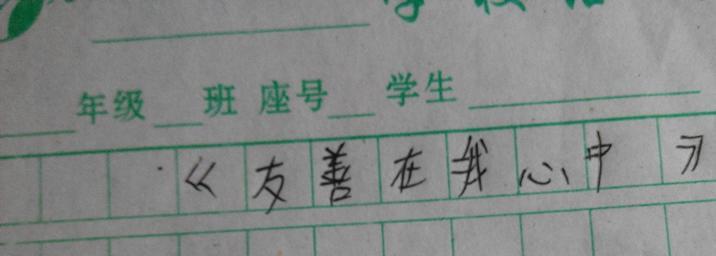 学校
年级 班 座号 学生
《友善在我心中》